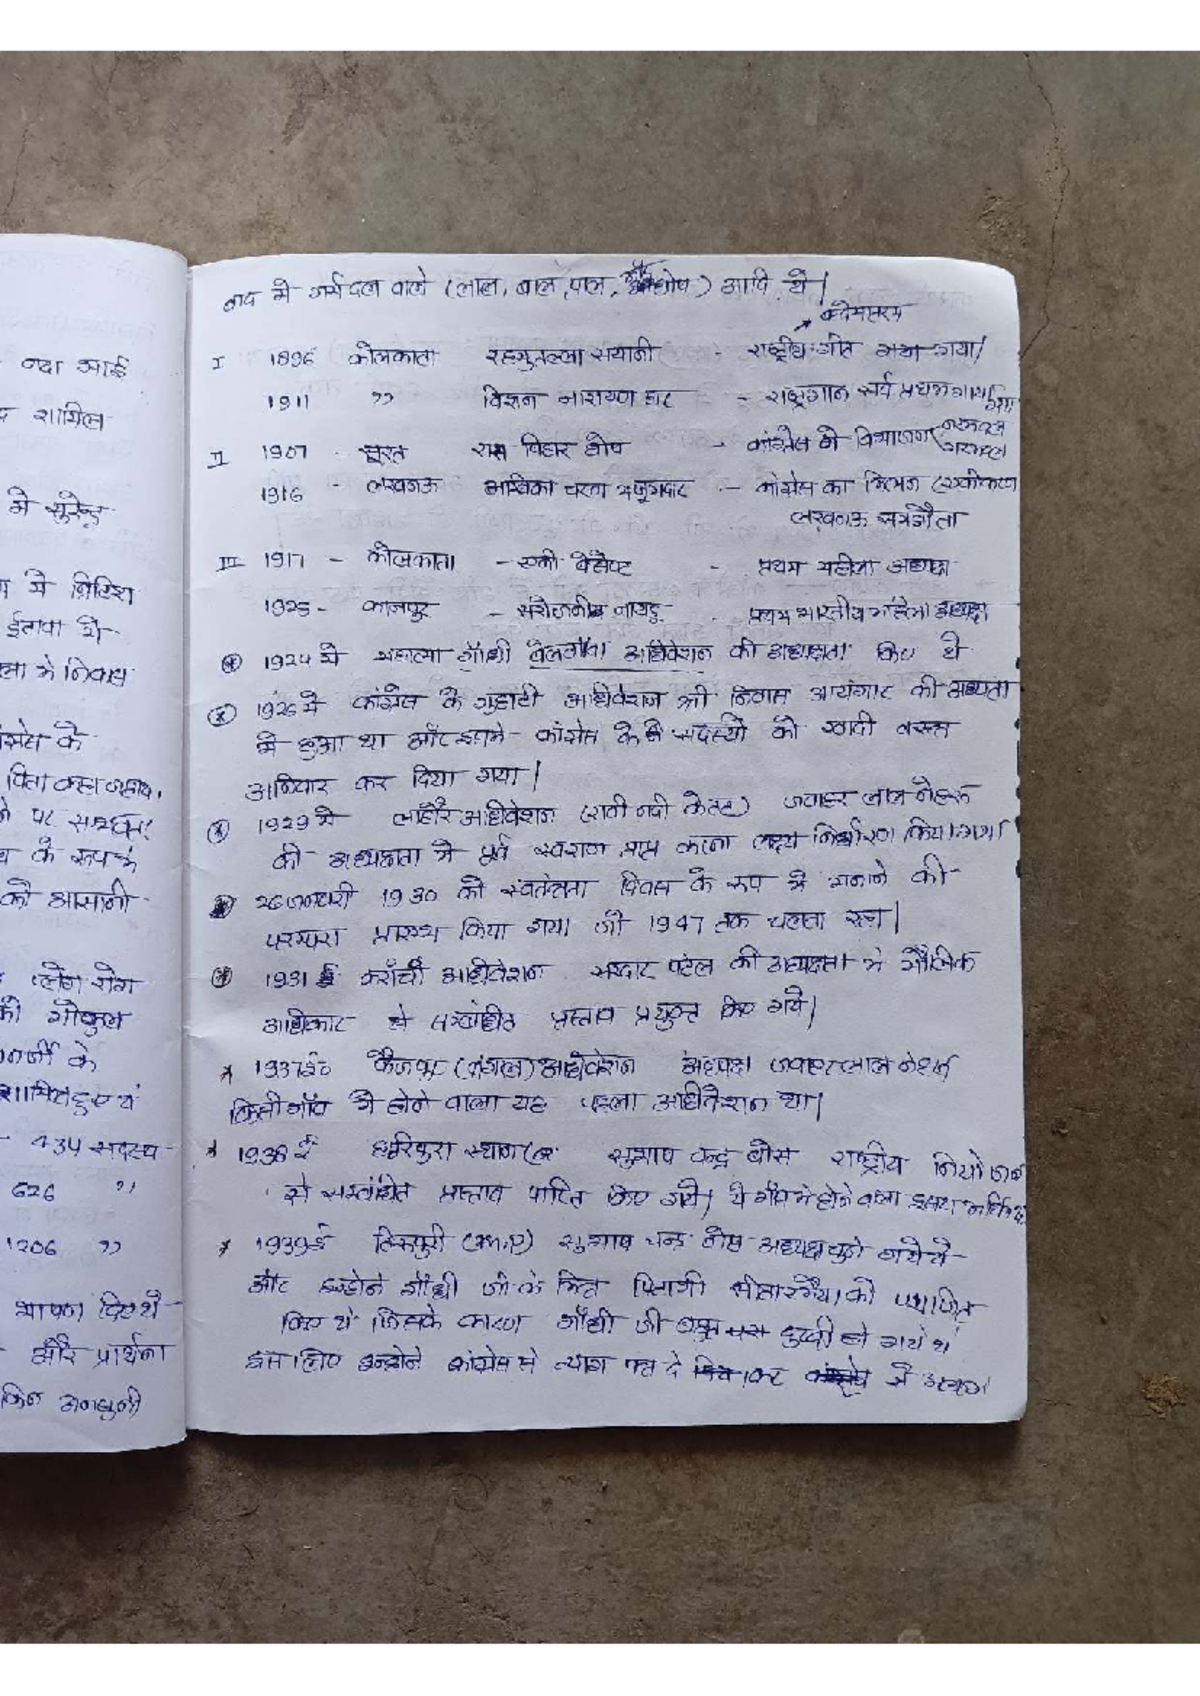 नया आई
शामिल
मे सुरेन्द्र
मे ब्रिटिश
ईलावा भी
मे निवास
के
पिता कहा जाता
पर सम्बन्धित
के रूप के
को आसानी
प्लेग रोग
की गोकुल
बनर्जी के
शामिल हुए थे
434 सदस्य
626 ,,
1206 ,,
भाषण दिए थे
और प्रार्थना
बाद मे गर्म दल वाले (लाल, बाल, पाल, घोष) आदि थे|
वन्देमातरम
I 1896 कोलकाता रहमुतल्ला सयानी - राष्ट्रीय गीत गाया गया|
1911 ,, विशन नारायण दर - राष्ट्रगान सर्व प्रथम गाया गया
II 1907 - सूरत रास विहार घोष - कांग्रेस के विभाजन (नरमदल गरमदल
1916 - लखनऊ अम्बिका चरण मजूमदार - कांग्रेस का मिलन (एकीकरण
लखनऊ समझौता
III 1917 - कोलकाता - एनी बेसेण्ट - प्रथम महिला अध्यक्ष
1925 - कानपुर - सरोजनी नायडू - प्रथम भारतीय महिला अध्यक्ष
1924 मे महात्मा गाँधी बेलगाँव अधिवेशन की अध्यक्षता किए थे
1926 मे कांग्रेस के गुहाटी अधिवेशन श्री निवास आयंगार की अध्यता
मे हुआ था और इसमे कांग्रेस के सदस्यो को खादी वस्त्र
अनिवार कर दिया गया|
1929 मे लाहौर अधिवेशन (रावी नदी के तट) जवाहर लाल नेहरू
की अध्यक्षता मे पूर्ण स्वराज प्राप्त करना लक्ष्य निर्धारण किया गया
26 जनवरी 1930 को स्वतंत्रता दिवस के रूप मे मनाने की
परम्परा प्रारम्भ किया गया जो 1947 तक चलता रहा|
1931 ई करॉची अधिवेशन सरदार पटेल की अध्यक्षता मे मौलिक
अधिकार से सम्बंधित प्रस्ताव प्रस्तुत किए गये|
* 1937ई० फैजपुर (बंगाल) अधिवेशन अध्यक्ष जवाहर लाल नेहरू
किसी गाँव मे होने वाला यह पहला अधिवेशन था|
* 1938 ई हरिपुरा सुभाष चन्द्र बोस राष्ट्रीय नियोजन
से सम्बंधित प्रस्ताव पारित किए गये| ये गाँव मे होने वाला दूसरा
* 1939ई त्रिपुरी (m.p) सुभाष चन्द्र बोष अध्यक्ष चुने गये थे
और इन्होने गाँधी जी के मित्र पितामी सीतारमैया को पराजित
किए थे जिसके कारण गाँधी जी बहुत दुखी हो गये थे
इस लिए इन्होने कांग्रेस से त्याग पत्र दे कर से अलग